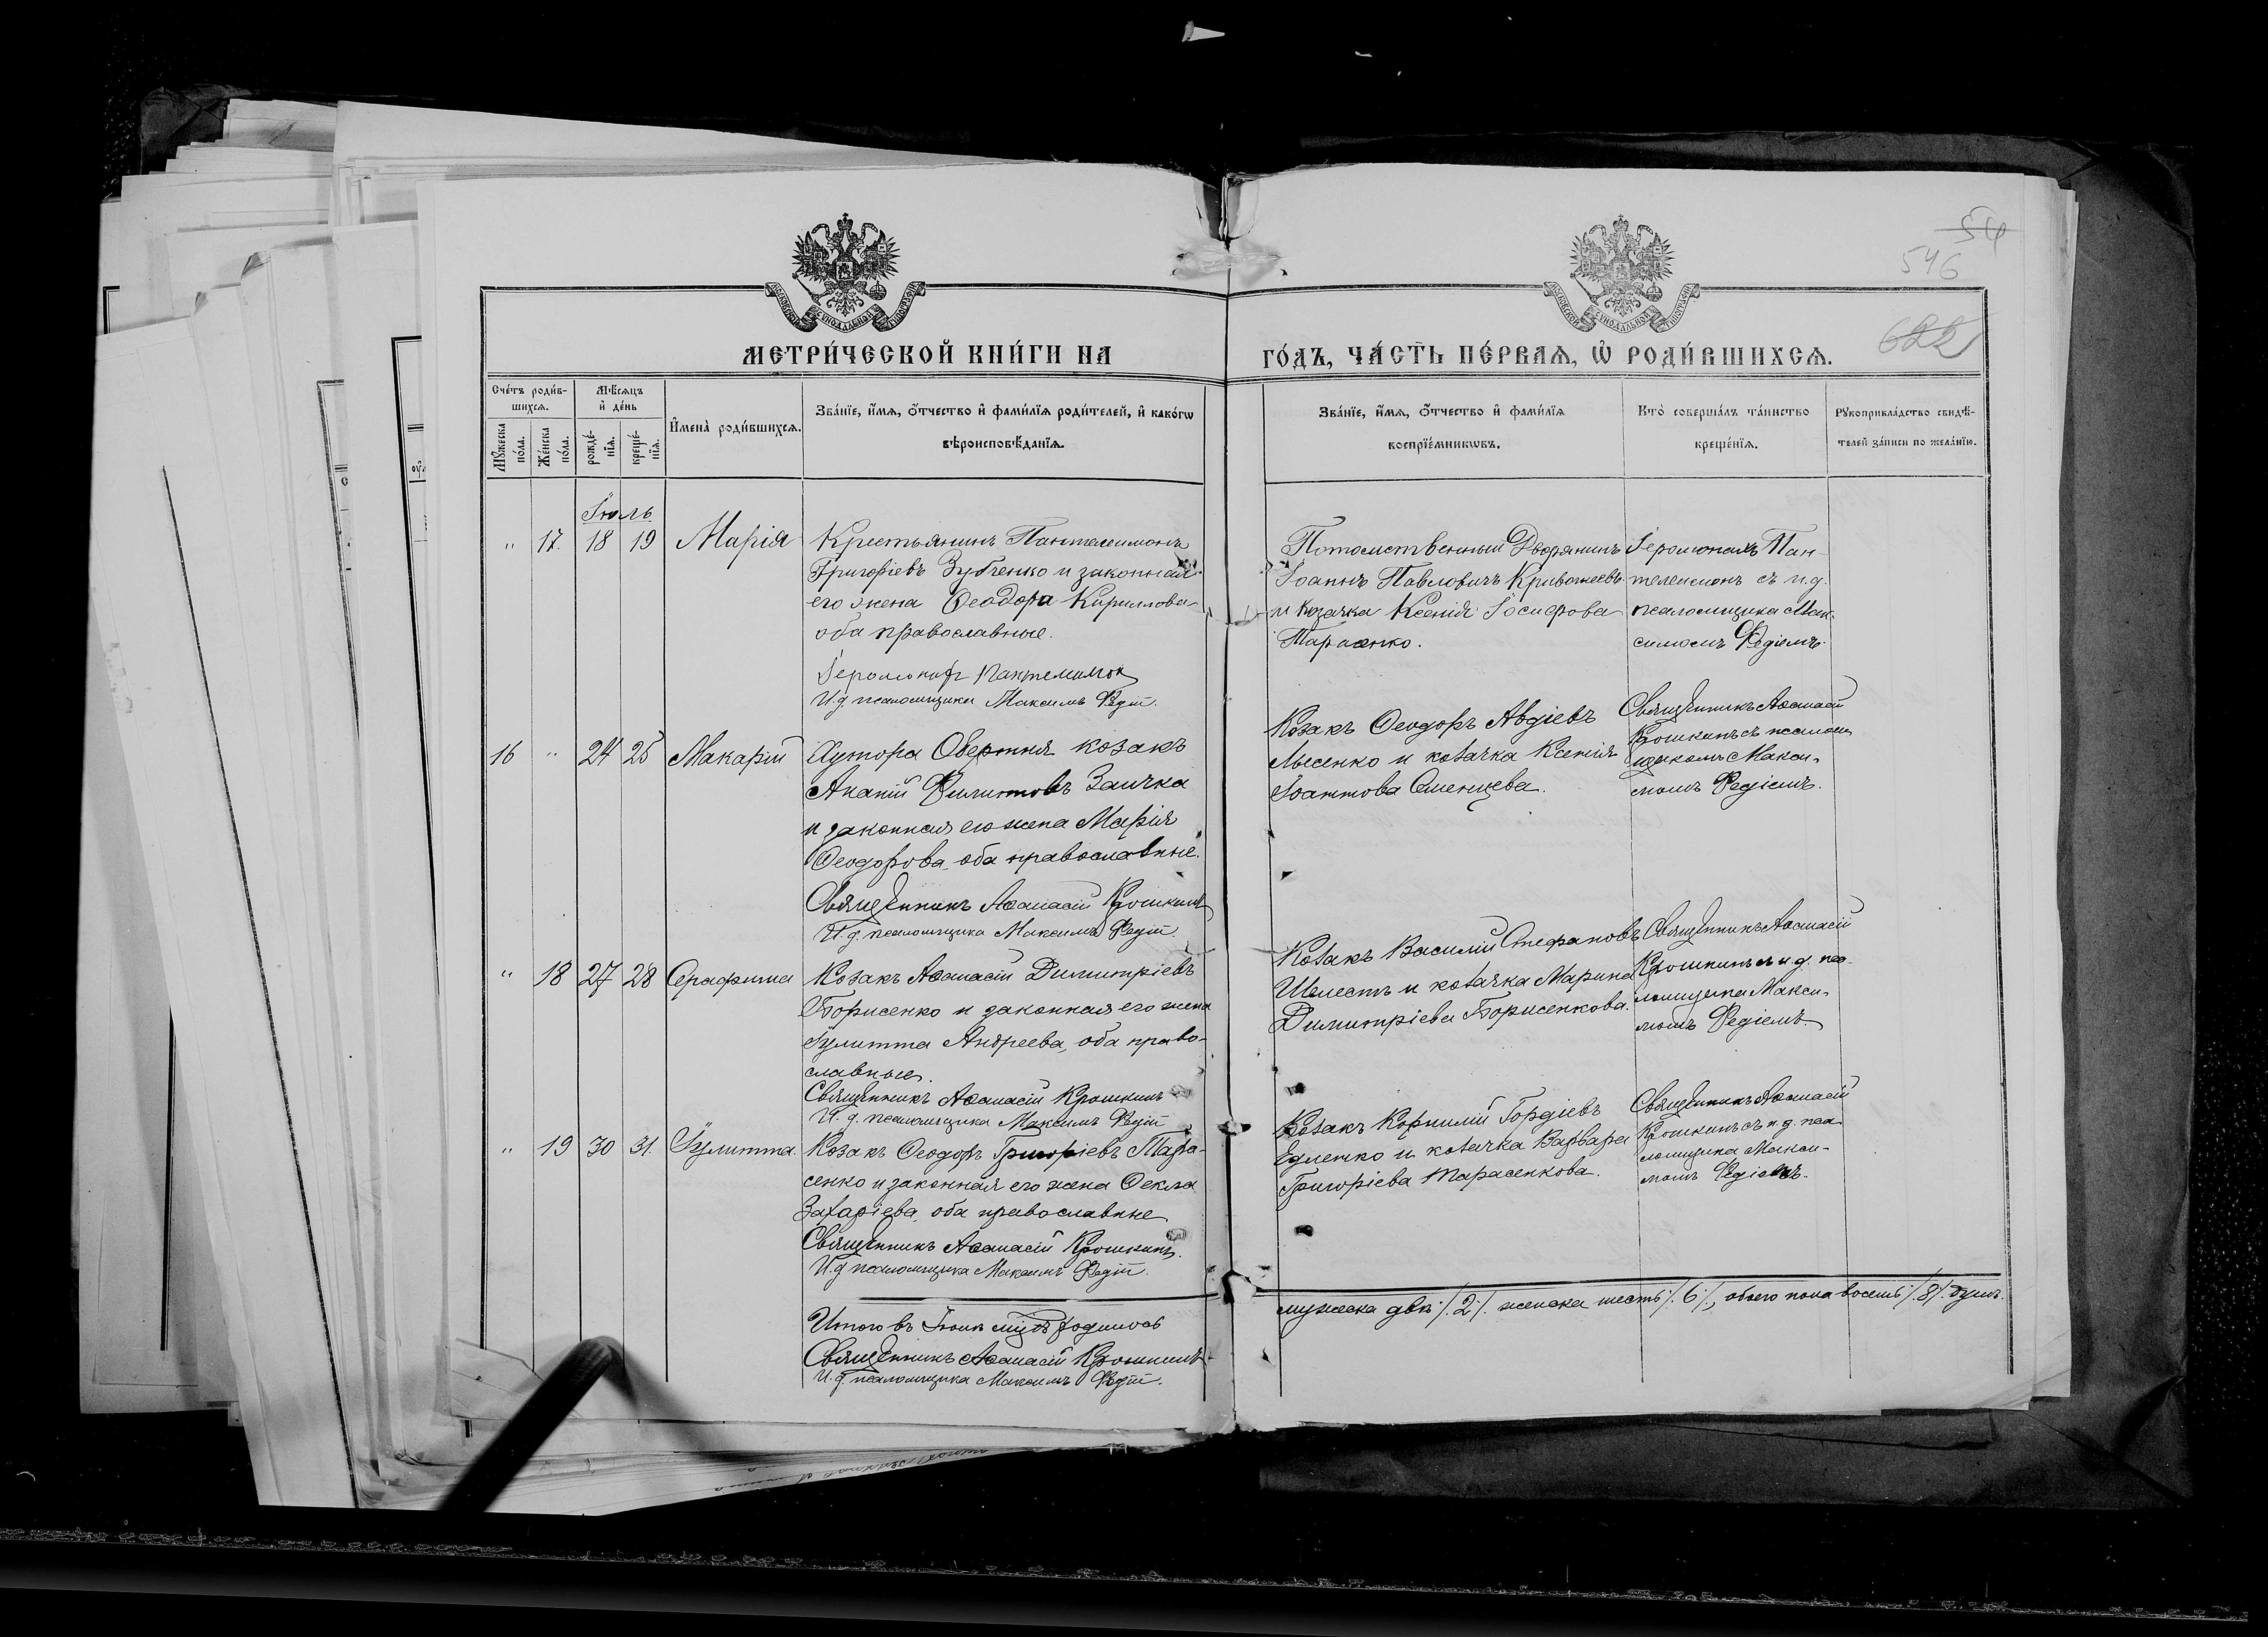 54
546
622
МОСКОВСКОЙ СѴНОДАЛЬНОЙ ТИПОГРАФІИ
МОСКОВСКОЙ СѴНОДАЛЬНОЙ ТИПОГРАФІИ
МЕТРИ́ЧЕСКОЙ КНИ́ГИ НА
ГО́ДЪ, ЧА́СТЬ ПЕ́РВАЯ, Ѡ҆ РОДИ́ВШИХСЯ.
Сче́тъ роди́в-
шихся.
Мѣ́сяцъ
и҆ де́нь
И҆мена̀ роди́вшихся.
Зва́нїе, и҆́мя, ѻ҆́тчество и҆ фами́лїя роди́телей, и҆ како́гѡ
вѣроисповѣ́данїя.
Мꙋ́жеска
по́ла.
Же́нска
по́ла.
рожде́-
нїя.
креще́-
нїя.
Зва́нїе, и҆́мя, ѻ҆́тчество и҆ фами́лїя
воспрїе́мникѡвъ.
Кто̀ соверша́лъ та́инство
креще́нїя.
Рꙋкоприкла́дство свидѣ́-
телей за́писи по жела́нїю.
Іюль
" 17. 18 19 Марія
Крестьянинъ Пантелеимонъ
Григоріевъ Зубченко и законная
его жена Ѳеодора Кириллова
оба православные.
Іеромонахъ Пантелеимон
И. д. псаломщика Максимъ Федій.
Потомственный Дворянинъ
Іоаннъ Павловичъ Кривошеевъ
и козачка Ксенія Іосифова
Тарасенко.
Іеромонахъ Пан-
телеимонъ съ и. д.
псаломщика Мак-
симомъ Федіемъ.
16 " 24 25 Макарій
Хутора Обертня козакъ
Ананій Филипповъ Заичка
и законная его жена Марія
Ѳеодорова, оба православные.
Священникъ Аѳанасій Крошкинъ
И. д. псаломщика Максимъ Федій.
Козакъ Ѳеодоръ Авдіевъ
Лысенко и козачка Ксенія
Іоаннова Семенцева.
Священникъ Аѳанасій
Крошкинъ съ псалом-
щикомъ Макси-
момъ Федіемъ.
" 18 27 28 Серафима
Козакъ Аѳанасій Димитріевъ
Борисенко и законная его жена
Іулитта Андреева, оба право-
славные.
Священникъ Аѳанасій Крошкинъ
И. д. псаломщика Максимъ Федій
Козакъ Василій Стефановъ
Шелестъ и козачка Марина
Димитріева Борисенкова.
Священникъ Аѳанасій
Крошкинъ съ и. д. пса-
ломщика Макси-
момъ Федіемъ.
" 19 30 31. Іулитта.
Козакъ Ѳеодоръ Григоріевъ Тара-
сенко и законная его жена Ѳекла
Захаріева, оба православные
Священникъ Аѳанасій Крошкинъ.
И. д псаломщика Максимъ Федій.
Козакъ Корнилій Гордіевъ
Едленко и козачка Варвара
Григоріева Тарасенкова.
Священникъ Аѳанасій
Крошкинъ съ и. д. пса-
ломщика Макси-
момъ Федіемъ.
Итого въ Іюлѣ мцѣ родилось
мужеска два /.2./. женска шесть /.6./, обоего пола восемь /.8/. душъ.
Священникъ Аѳанасій Крошкинъ
И. д. псаломщика Максимъ Федій.